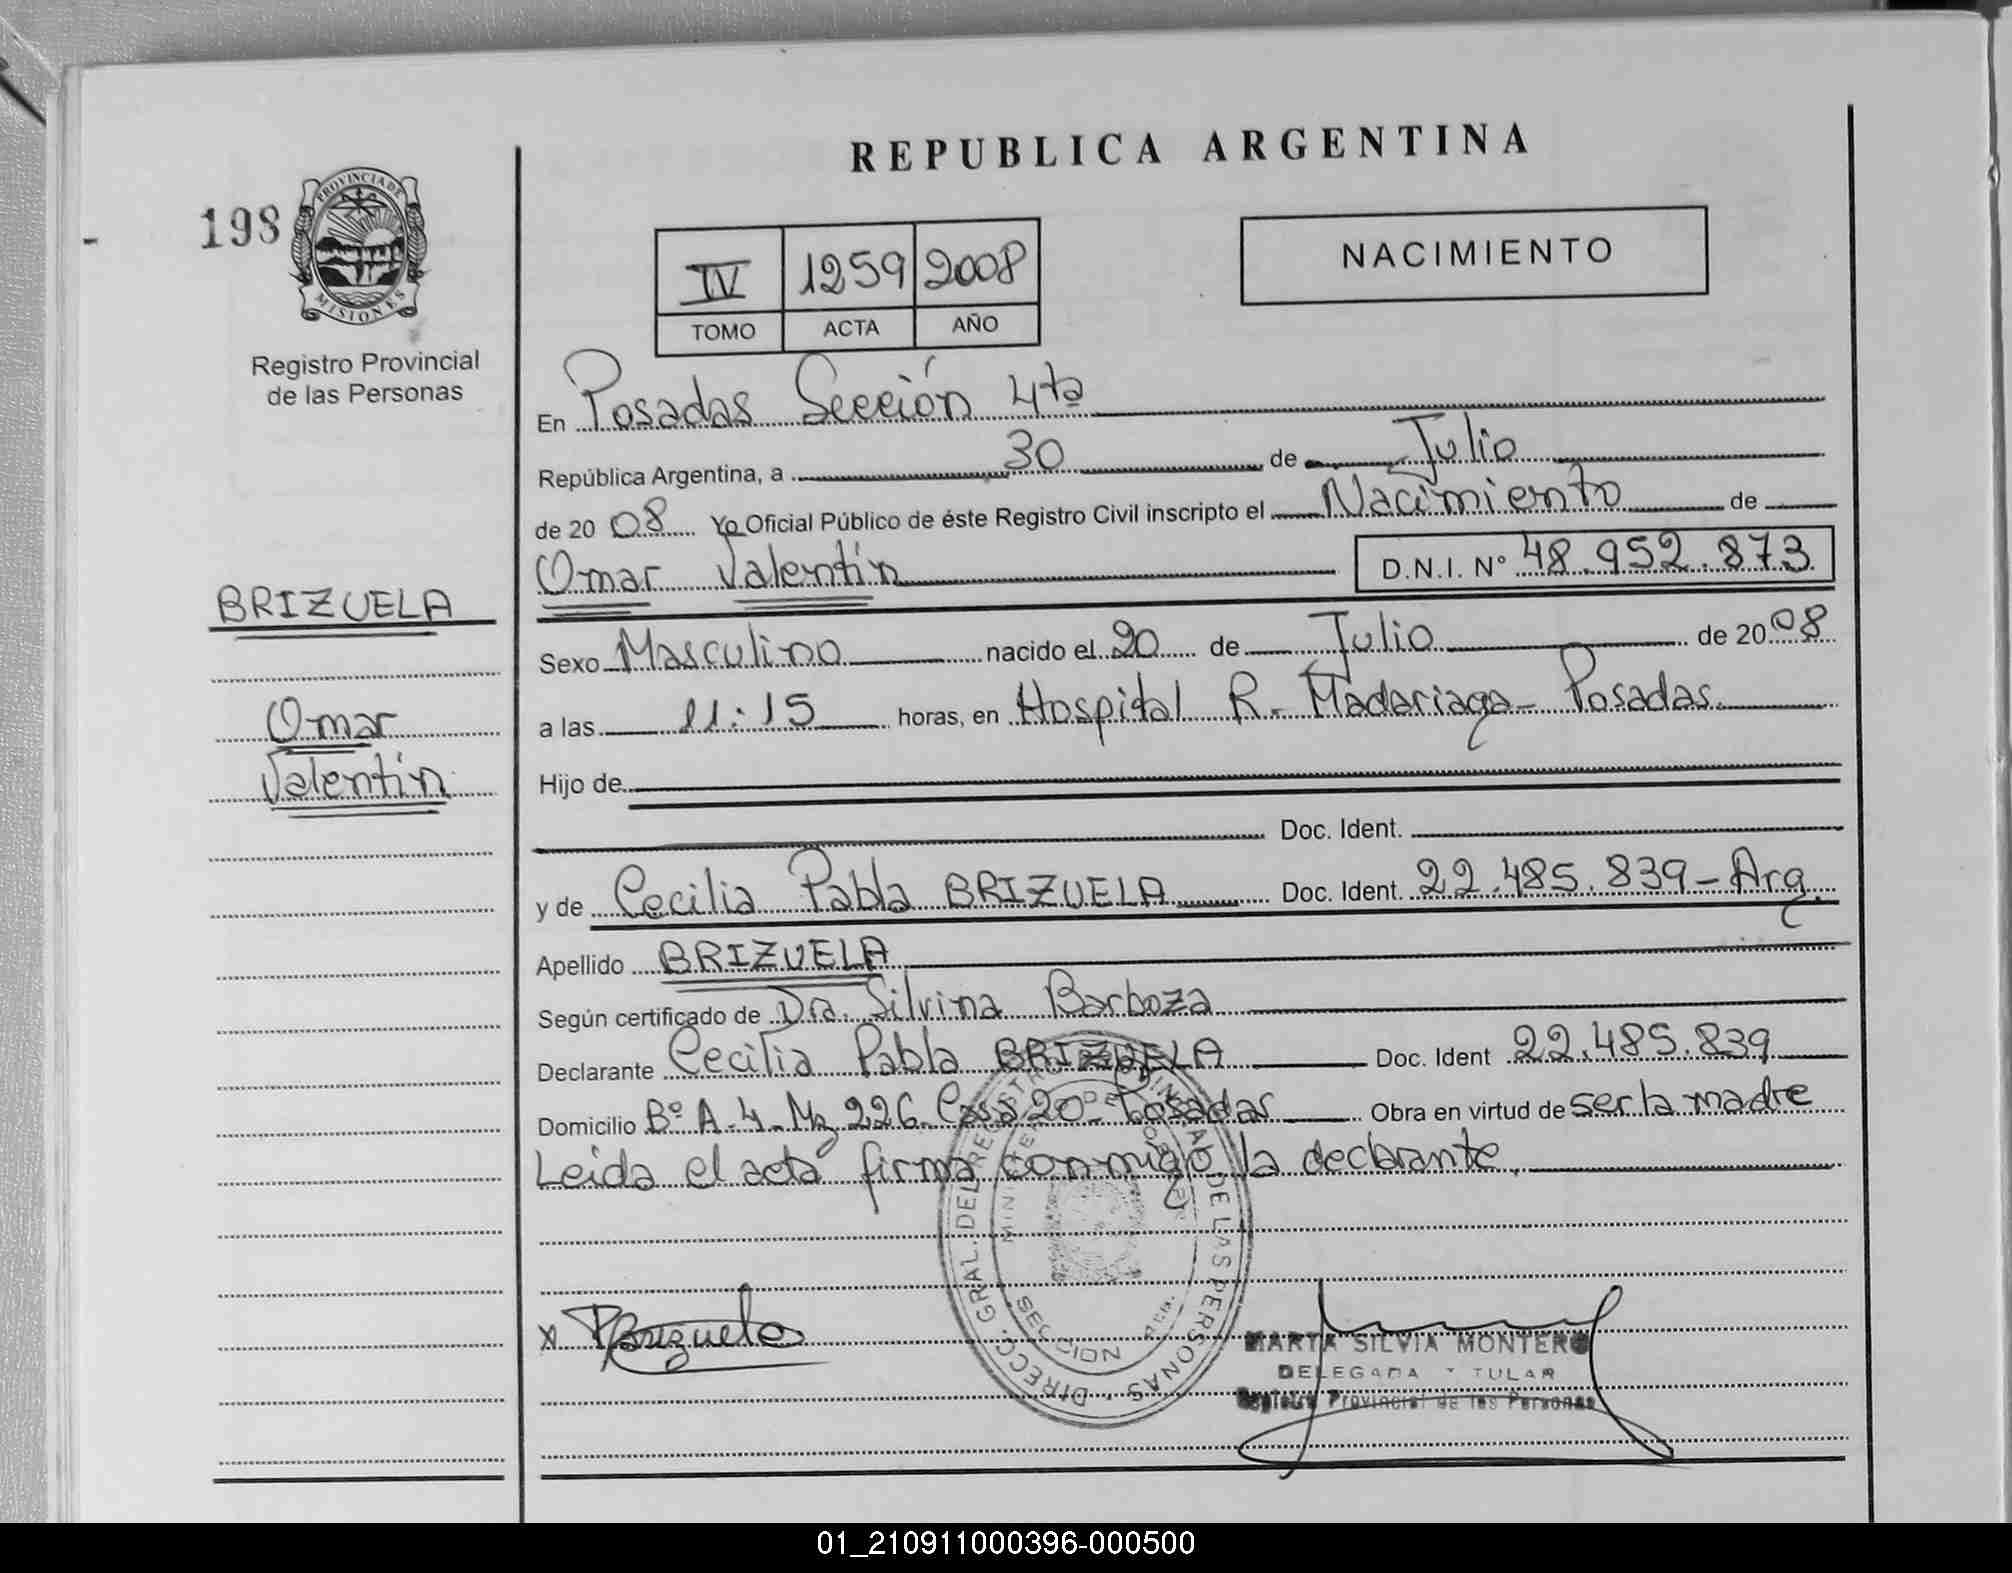 REPUBLICA ARGENTINA
198
PROVINCIA DE
MISIONES
Registro Provincial
de las Personas
IV 1259 2008
TOMO ACTA AÑO
NACIMIENTO
En Posadas Sección 4ta
República Argentina, a 30 de Julio
de 2008 Yo Oficial Público de éste Registro Civil inscripto el Nacimiento de
Omar Valentín D.N.I. Nº 48.952.873
BRIZUELA
Omar
Valentín
Sexo Masculino nacido el 20 de Julio de 2008
a las 11:15 horas, en Hospital R. Madariaga - Posadas.
Hijo de
Doc. Ident.
y de Cecilia Pabla BRIZUELA Doc. Ident. 22.485.839 - Arg.
Apellido BRIZUELA
Según certificado de Dra. Silvina Barboza
Declarante Cecilia Pabla BRIZUELA Doc. Ident 22.485.839
Domicilio Bº A-4-Mz 226 Casa 20- Posadas Obra en virtud de ser la madre
Leida el acta firma conmigo la declarante.
DIRECC. GRAL. DEL REGISTRO PROVINCIAL DE LAS PERSONAS
SECCION
x PBrizuela
MARTA SILVIA MONTERO
DELEGADA TITULAR
Registro Provincial de las Personas
01_210911000396-000500